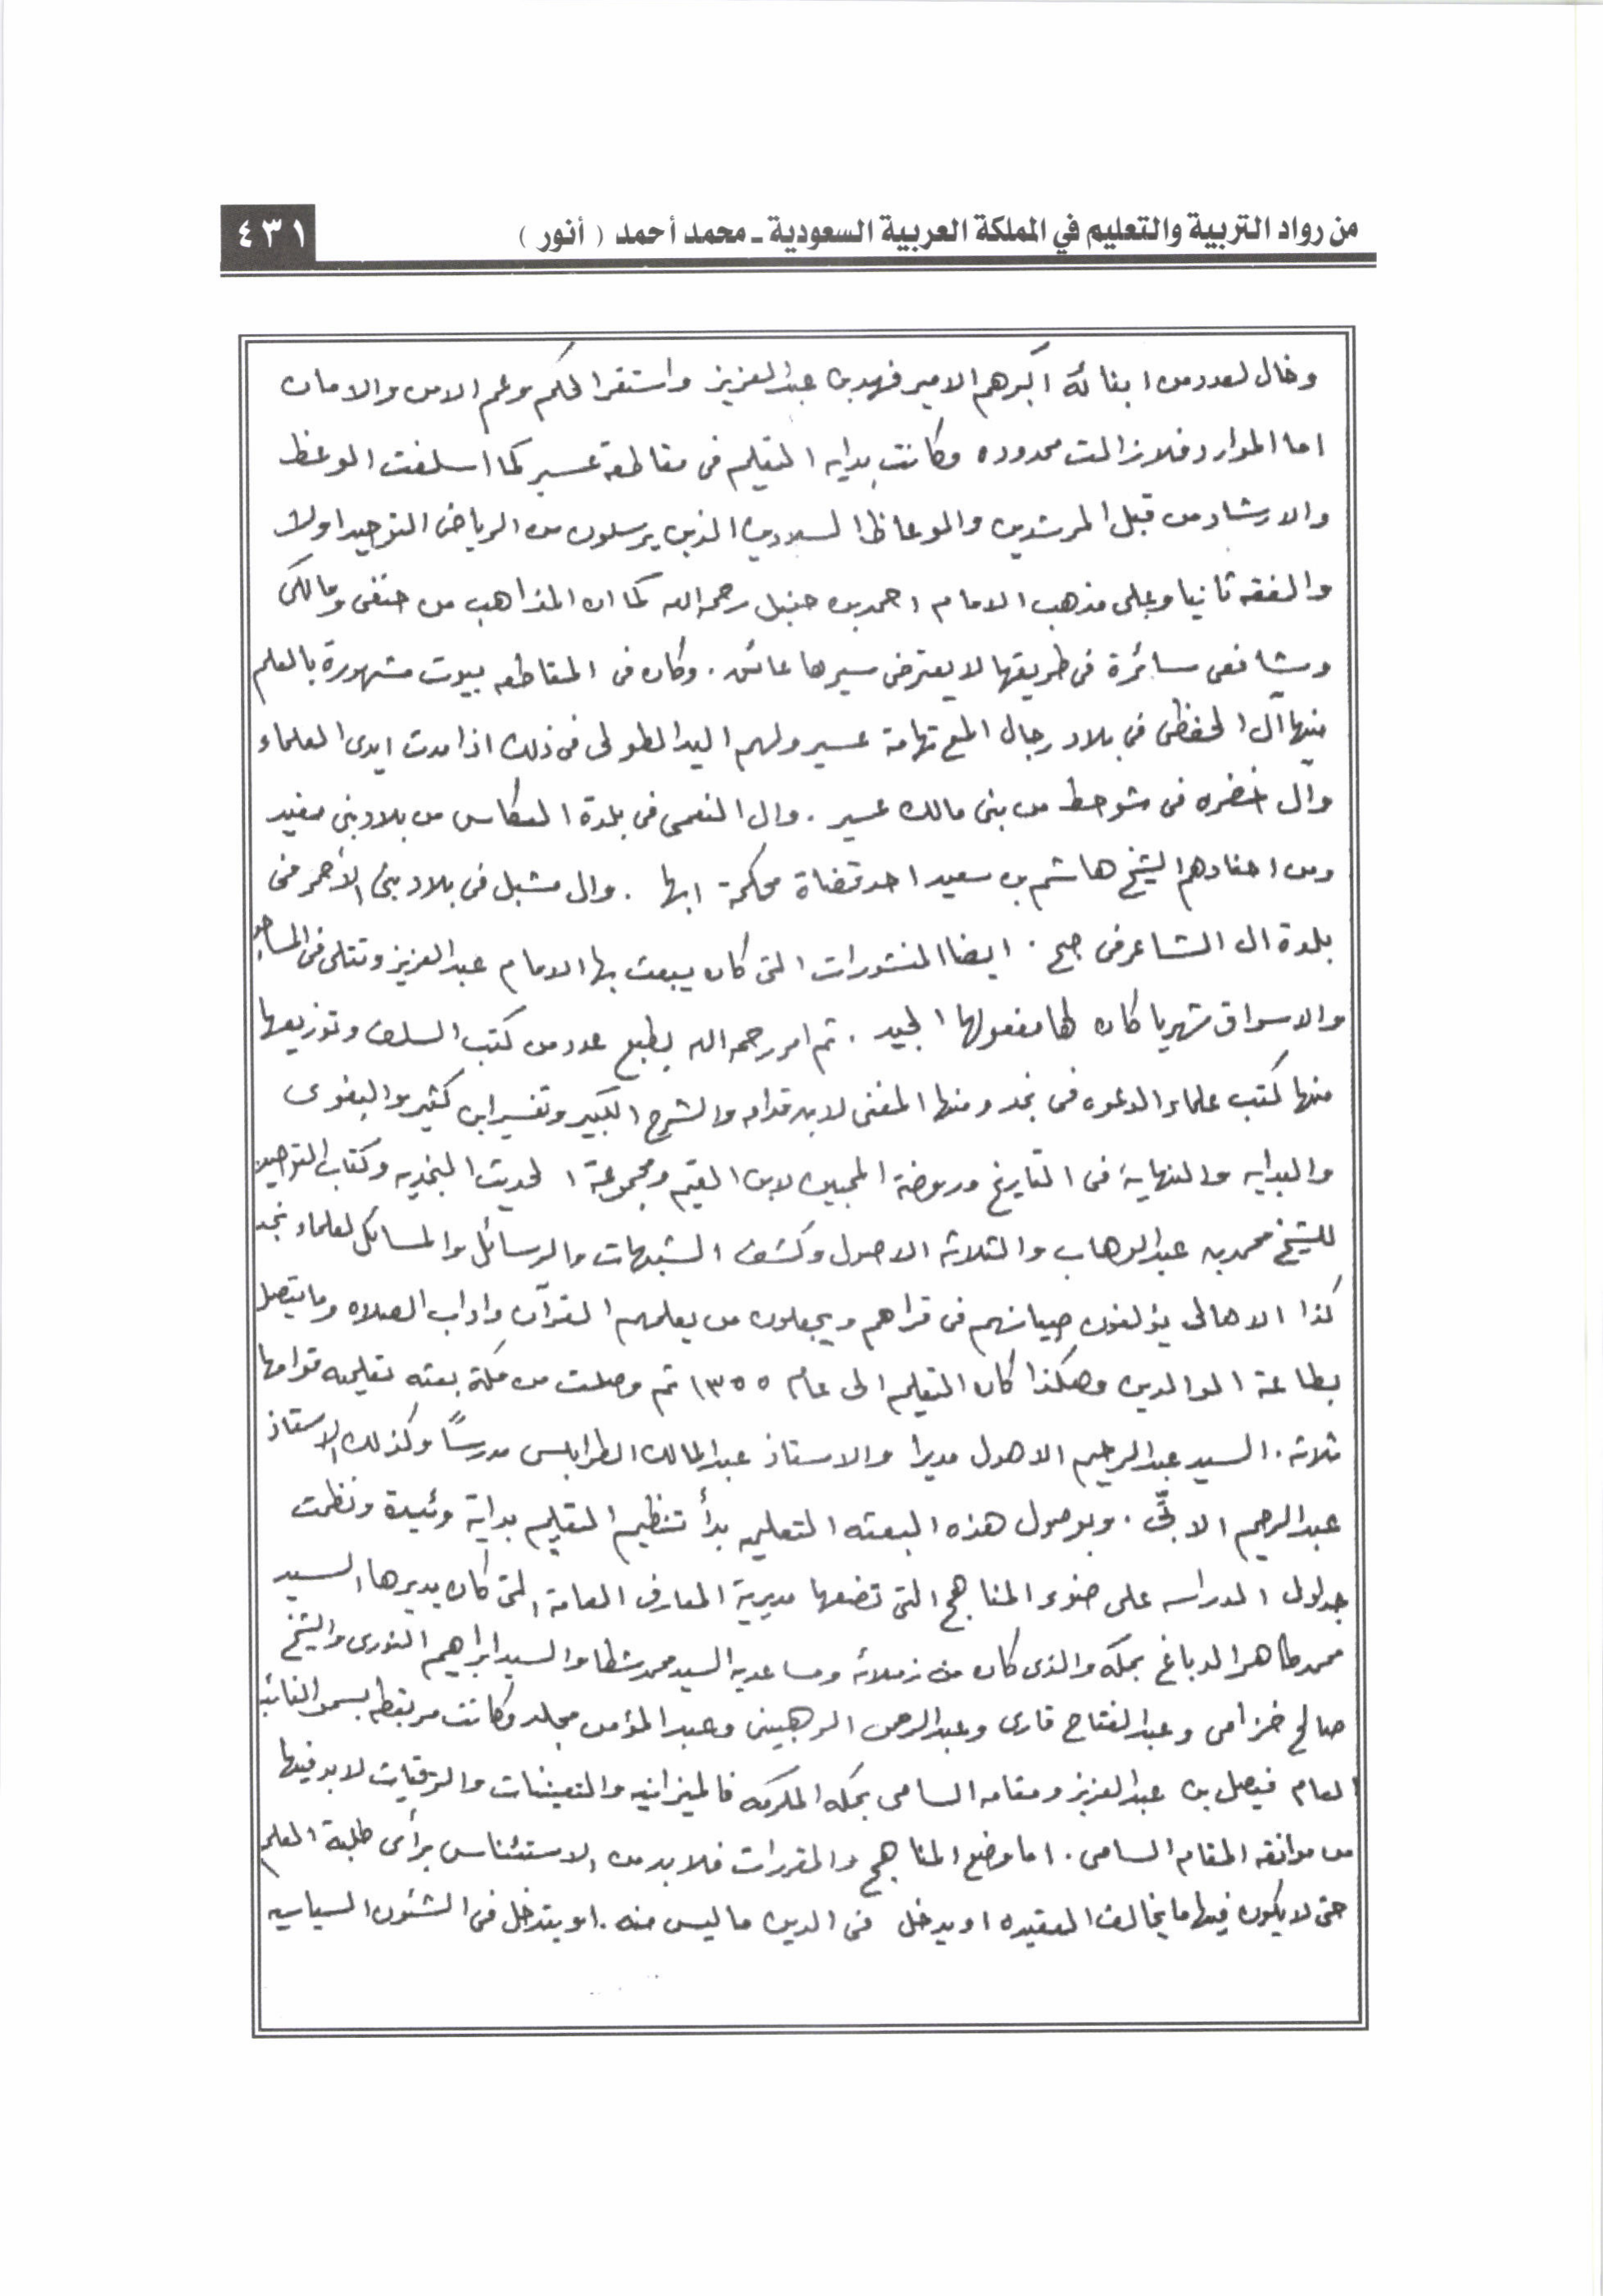 من رواد التربية والتعليم في المملكة العربية السعودية ـ محمد أحمد ( أنور )
٤٣١
وخال لعدد من ابنائه اكبرهم الامير فهد بن عبدالعزيز واستقر الحكم وعم الامن والامان
اما الموارد فلازالت محدوده وكانت بدايه التعليم في مقاطعة عسير كما اسلفت الوعظ
والارشاد من قبل المرشدين والوعاظ الذين يرسلون من الرياض التوحيد اولا
والفقه ثانيا وعلى مذهب الامام احمد بن حنبل رحمه الله كما ان المذاهب من حنفى ومالكى
وشافعى سائرة في طريقها لا يعترض سيرها عائق . وكان في المقاطعه بيوت مشهورة بالعلم
منها آل الحفظى في بلاد رجال المع تهامة عسير ولهم اليد الطولى في ذلك اذا عدت ايدى العلماء
وال خضره في شوحط من بنى مالك عسير . وال النعمى في بلدة العكاس من بلاد بنى مغيد
ومن احفادهم الشيخ هاشم بن سعيد احد قضاة محكمة ابها . وال مشبل في بلاد بنى الأحمر في
بلدة ال الشاعر في صبح . ايضا المنشورات التى كان يبعث بها الامام عبدالعزيز وتتلى في المساجد
والاسواق شهريا كان لها مفعولها الجيد . ثم امر رحمه الله بطبع عدد من كتب السلف وتوزيعها
منها كتب علماء الدعوه في نجد ومنها المغنى لابن قدامه والشرح الكبير وتفسير ابن كثير والبغوى
والبدايه والنهاية في التاريخ وروضة المحبين لابن القيم ومجموعة الحديث النجديه وكتاب التوحيد
للشيخ محمد بن عبدالوهاب والثلاثه الاصول وكشف الشبهات والرسائل والمسائل لعلماء نجد
كذا الاهالى يؤلفون صبيانهم في قراهم ويجعلون من يعلمهم القرآن واداب الصلاه وما يتصل
بطاعة الوالدين وهكذا كان التعليم الى عام ١٣٥٥ ثم وصلت من مكة بعثه تعليميه قوامها
ثلاثه . السيد عبدالرحيم الاهدل مديرا والاستاذ عبدالمالك الطرابلسى مدرساً وكذلك الاستاذ
عبدالرحيم الابىّ . وبوصول هذه البعثه التعليميه بدأ تنظيم التعليم بداية وئيدة ونظمت
جداول الدراسه على ضوء المناهج التى تضعها مديرية المعارف العامة التى كان يديرها السيد
محمد طاهر الدباغ بمكه والذى كان من زملائه ومساعديه السيد محمد شطا والسيد ابراهيم النورى والشيخ
صالح خزامى وعبدالفتاح قارى وعبدالرحمن وعبدالمؤمن مجلد وكانت مربتطه بسمو النائب
العام فيصل بن عبدالعزيز ومقامه السامى بمكه المكرمه فالميزانيه والتعيينات والترقيات لابد فيها
من موافقه المقام السامى . اما وضع المناهج والمقررات فلابد من الاستئناس برأى طلبة العلم
حتى لا يكون فيها ما يخالف العقيده او يدخل في الدين ما ليس منه . او يتدخل في الشئون السياسيه